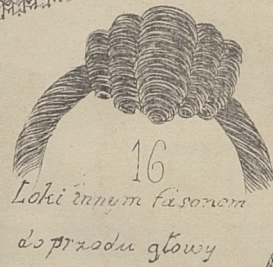 16
Loki innym fasonem
do przodu głowy